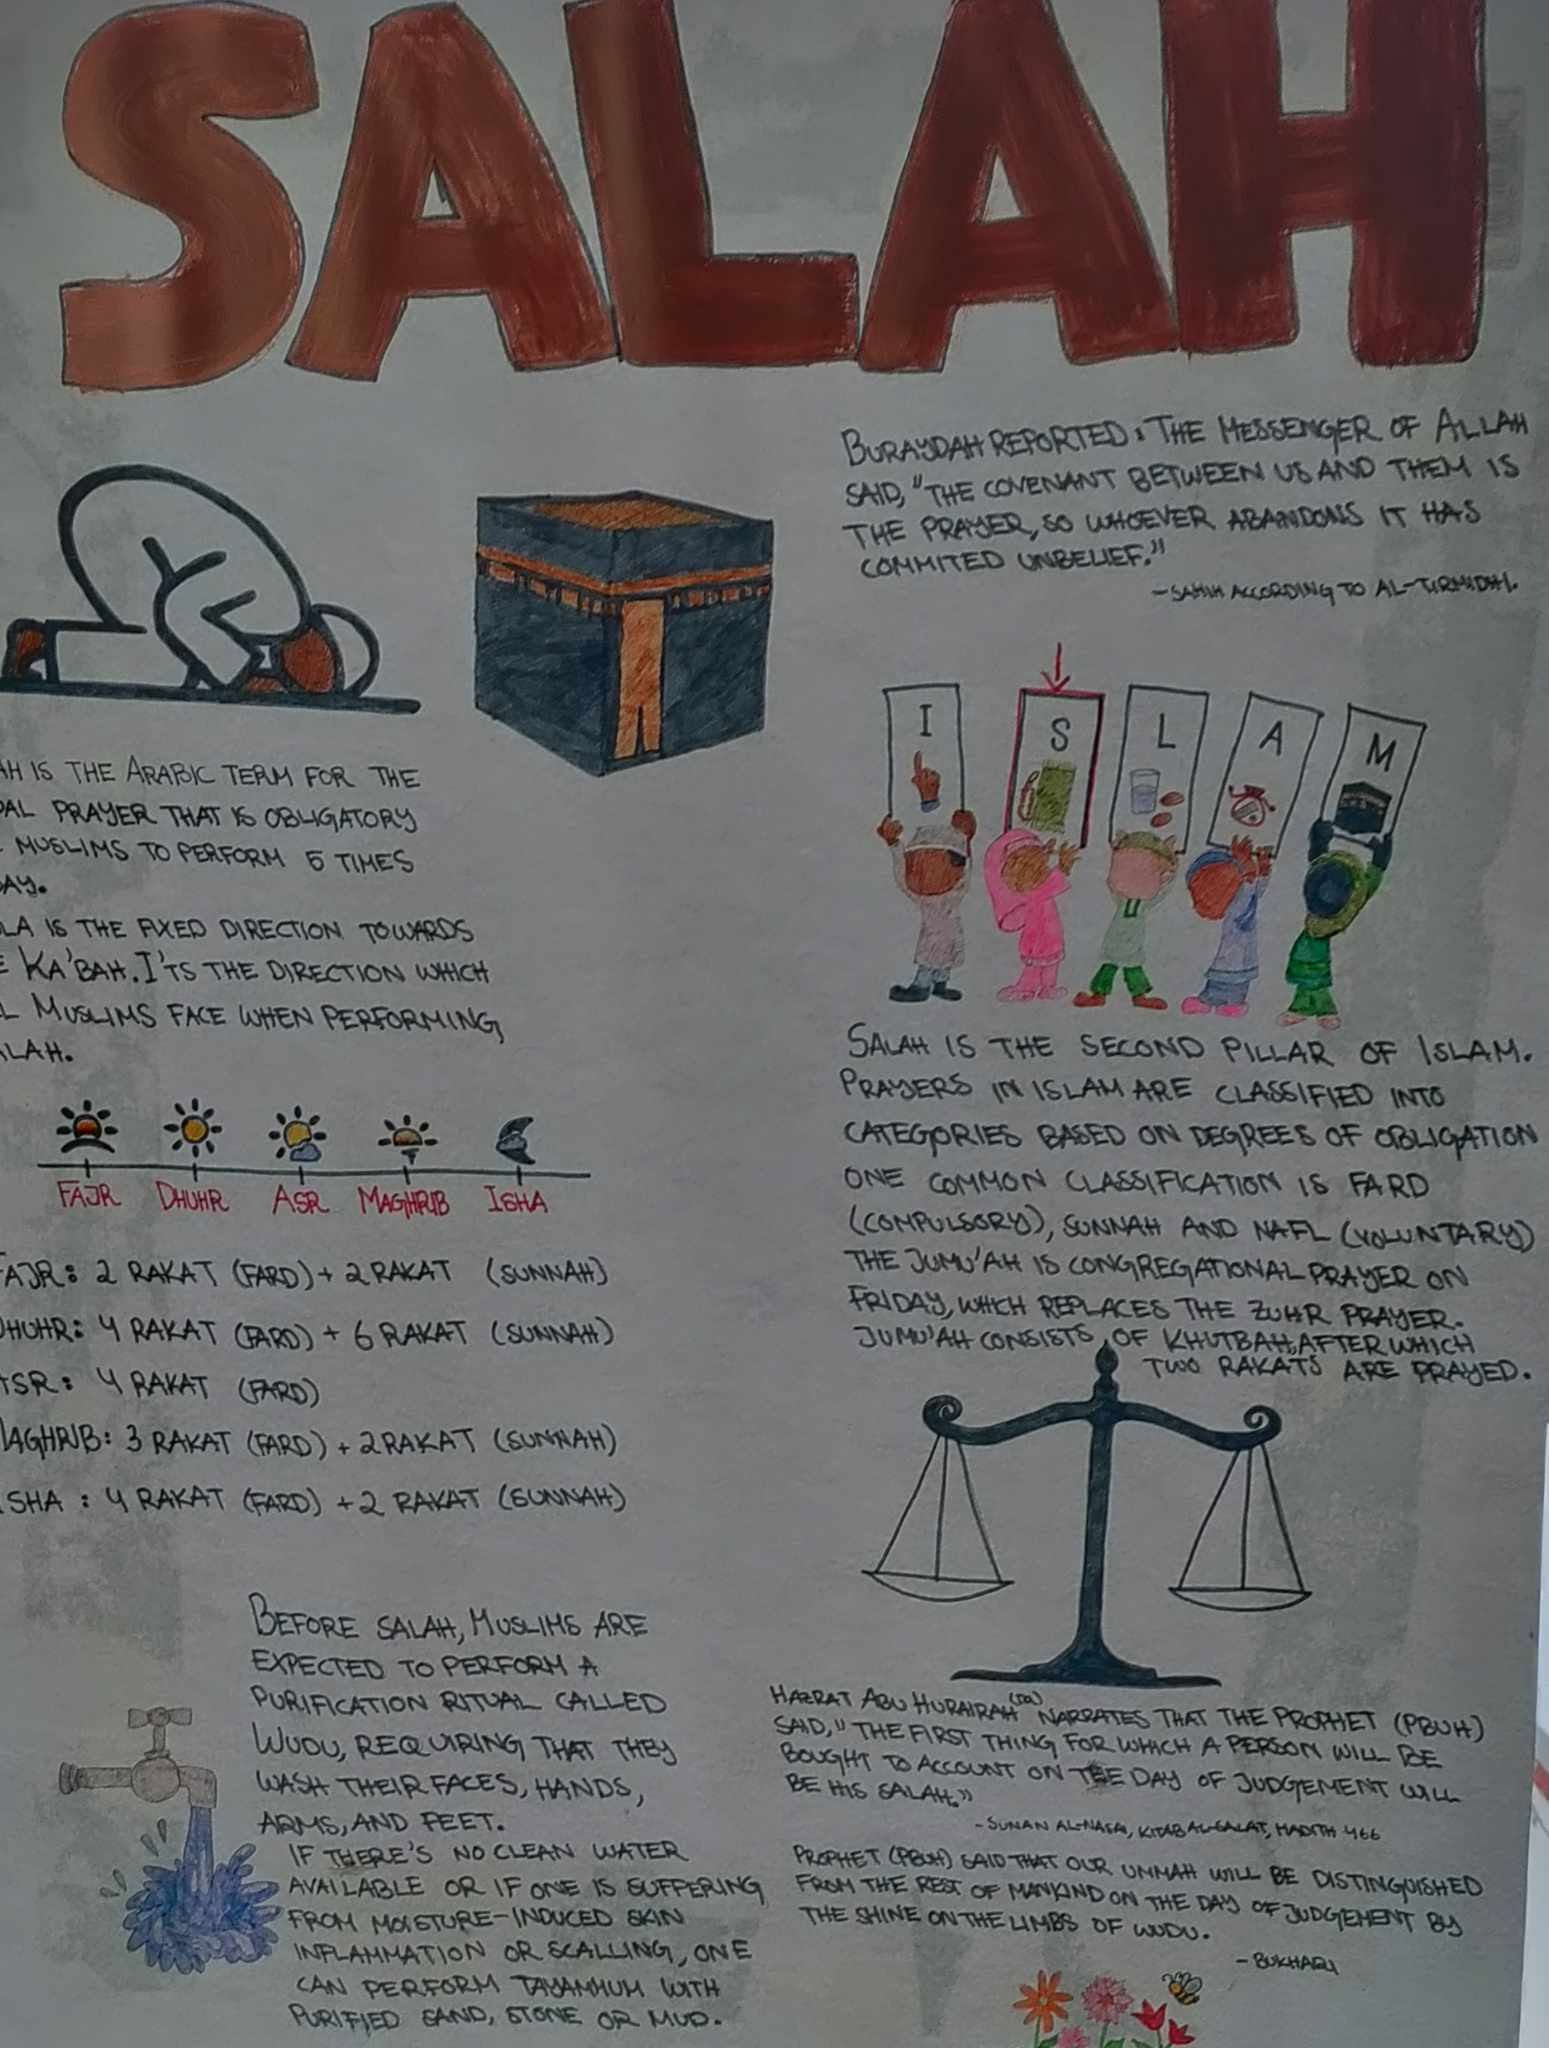 SALAH
BURAYDAH REPORTED: THE MESSENGER OF ALLAH
SAID, "THE COVENANT BETWEEN US AND THEM IS
THE PRAYER, SO WHOEVER ABANDONS IT HAS
COMMITED UNBELIEF."
-SAHIH ACCORDING TO AL-TIRMIDHI.
I S L A M
AH IS THE ARABIC TERM FOR THE
PRAYER THAT IS OBLIGATORY
MUSLIMS TO PERFORM 5 TIMES
DAY.
LA IS THE FIXED DIRECTION TOWARDS
E KA'BAH. I'TS THE DIRECTION WHICH
L MUSLIMS FACE WHEN PERFORMING
ALAH.
FAJR DHUHR ASR MAGHRIB ISHA
FAJR: 2 RAKAT (FARD) + 2 RAKAT (SUNNAH)
DHUHR: 4 RAKAT (FARD) + 6 RAKAT (SUNNAH)
ASR: 4 RAKAT (FARD)
MAGHRIB: 3 RAKAT (FARD) + 2 RAKAT (SUNNAH)
ISHA : 4 RAKAT (FARD) + 2 RAKAT (SUNNAH)
SALAH IS THE SECOND PILLAR OF ISLAM.
PRAYERS IN ISLAM ARE CLASSIFIED INTO
CATEGORIES BASED ON DEGREES OF OBLIGATION
ONE COMMON CLASSIFICATION IS FARD
(COMPULSORY), SUNNAH AND NAFL (VOLUNTARY)
THE JUMU'AH IS CONGREGATIONAL PRAYER ON
FRIDAY, WHICH REPLACES THE ZUHR PRAYER.
JUMU'AH CONSISTS OF KHUTBAH, AFTER WHICH
TWO RAKATS ARE PRAYED.
BEFORE SALAH, MUSLIMS ARE
EXPECTED TO PERFORM A
PURIFICATION RITUAL CALLED
WUDU, REQUIRING THAT THEY
WASH THEIR FACES, HANDS,
ARMS, AND FEET.
IF THERE'S NO CLEAN WATER
AVAILABLE OR IF ONE IS SUFFERING
FROM MOISTURE-INDUCED SKIN
INFLAMMATION OR SCALLING, ONE
CAN PERFORM TAYAMMUM WITH
PURIFIED SAND, STONE OR MUD.
HAZRAT ABU HURAIRAH NARRATES THAT THE PROPHET (PBUH)
SAID, "THE FIRST THING FOR WHICH A PERSON WILL BE
BOUGHT TO ACCOUNT ON THE DAY OF JUDGEMENT WILL
BE HIS SALAH."
-SUNAN AL-NASAI, KITAB AL-SALAT, HADITH 466
PROPHET (PBUH) SAID THAT OUR UMMAH WILL BE DISTINGUISHED
FROM THE REST OF MANKIND ON THE DAY OF JUDGEMENT BY
THE SHINE ON THE LIMBS OF WUDU.
- BUKHARI